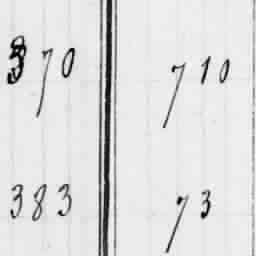 370 710
383 73